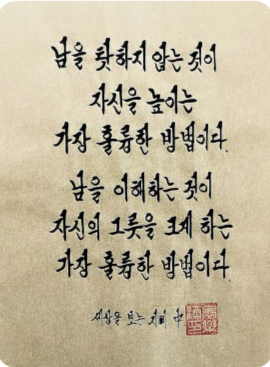 남을 탓하지 않는 것이
자신을 높이는
가장 훌륭한 방법이다.
남을 이해하는 것이
자신의 그릇을 크게 하는
가장 훌륭한 방법이다.
세상을 보는 지혜 中